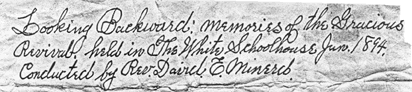 Looking Backward: memories of the Gracious
Revival, held in The White Schoolhouse, Jan. 1894,
Conducted by Rev. David E. Minerd.